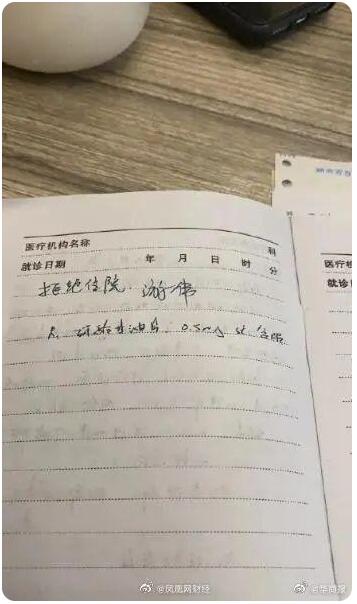 医疗机构名称 科
就诊日期 年 月 日 时 分
拒绝住院. 游伟
R. 硝酸甘油片 0.5mg st 含服
医疗
就诊
@凤凰网财经 @华商报